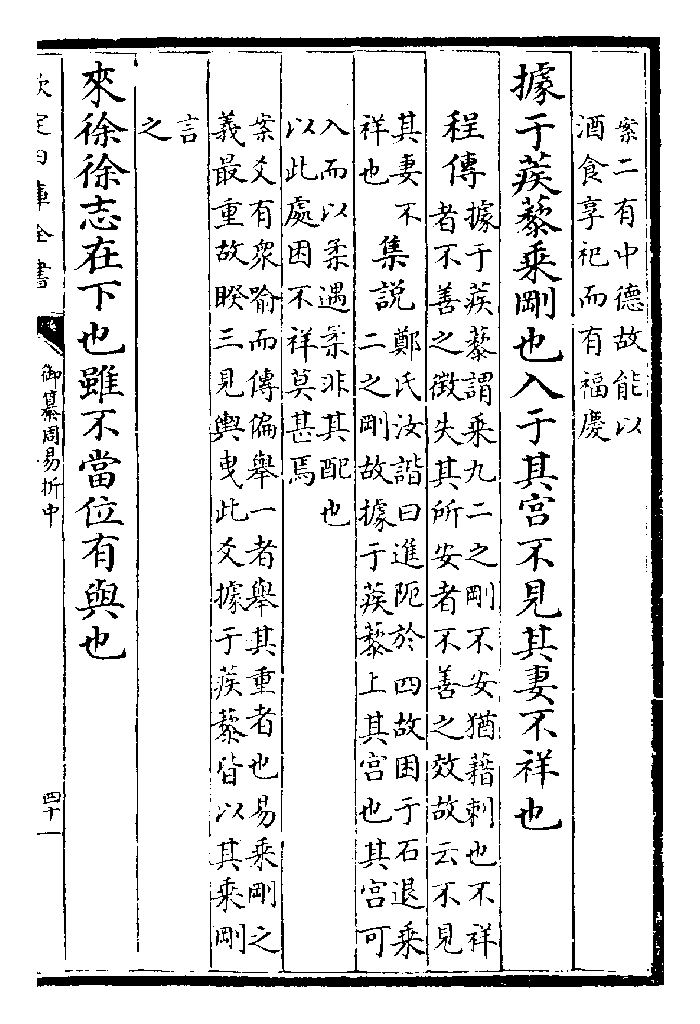 案二有中德故能以
酒食享祀而有福慶
據于蒺藜乘剛也入于其宫不見其妻不祥也
程傳
據于蒺藜謂乘九二之剛不安猶藉刺也不祥
者不善之徵失其所安者不善之效故云不見
其妻不
祥也
集説
鄭氏汝諧曰進阨於四故困于石退乘
二之剛故據于蒺藜上其宫也其宫可
入而以柔遇柔非其配也
以此處困不祥莫甚焉
案爻有衆喻而傳偏舉一者舉其重者也易乘剛之
義最重故睽三見輿曳此爻據于蒺藜皆以其乘剛
言
之
來徐徐志在下也雖不當位有與也
欽定四庫全書
御纂周易折中
四十一